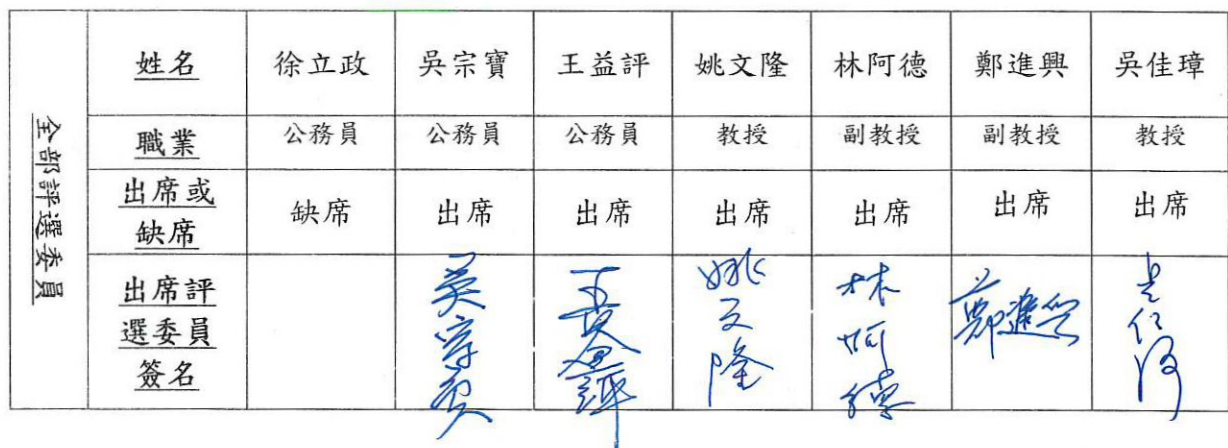 全部評選委員
姓名 徐立政 吳宗寶 王益評 姚文隆 林阿德 鄭進興 吳佳璋
職業 公務員 公務員 公務員 教授 副教授 副教授 教授
出席或
缺席
缺席 出席 出席 出席 出席 出席 出席
出席評
選委員
簽名
姚文隆
林阿德
鄭進興